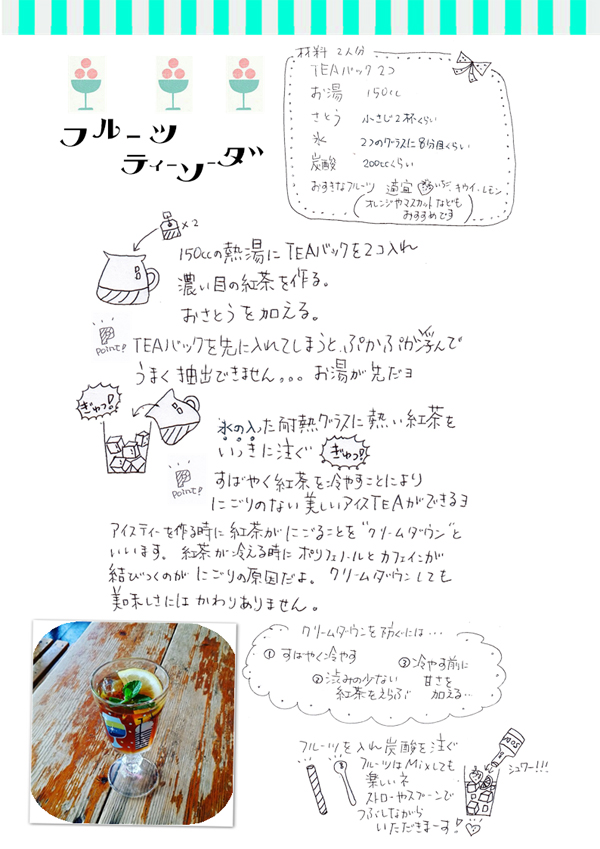 フルーツ
ティーソーダ
材料 2人分
TEAバック 2コ
お湯 150cc
さとう 小さじ2杯くらい
氷 2つのグラスに8分目くらい
炭酸 200ccくらい
おすきなフルーツ 適宜 いちご、キウイ、レモン
(オレンジやマスカットなども
おすすめです)
×2
150ccの熱湯にTEAバックを2コ入れ
濃い目の紅茶を作る。
おさとうを加える。
Point!
TEAバックを先に入れてしまうと、ぷかぷか浮んで
うまく抽出できません。。。お湯が先だヨ
ぎゅっ!
氷の入った耐熱グラスに熱い紅茶を
いっきに注ぐ ぎゅっ!
Point!
すばやく紅茶を冷やすことにより
にごりのない美しいアイスTEAができるヨ
アイスティーを作る時に紅茶がにごることを“クリームダウン”と
いいます。紅茶が冷える時にポリフェノールとカフェインが
結びつくのがにごりの原因だよ。クリームダウンしても
美味しさにはかわりありません。
クリームダウンを防ぐには…
① すばやく冷やす
② 渋みの少ない
紅茶をえらぶ
③ 冷やす前に
甘さを
加える…
フルーツを入れ炭酸を注ぐ
フルーツはMixしても
楽しいネ
ストローやスプーンで
つぶしながら
いただきまーす!
シュワー!!!